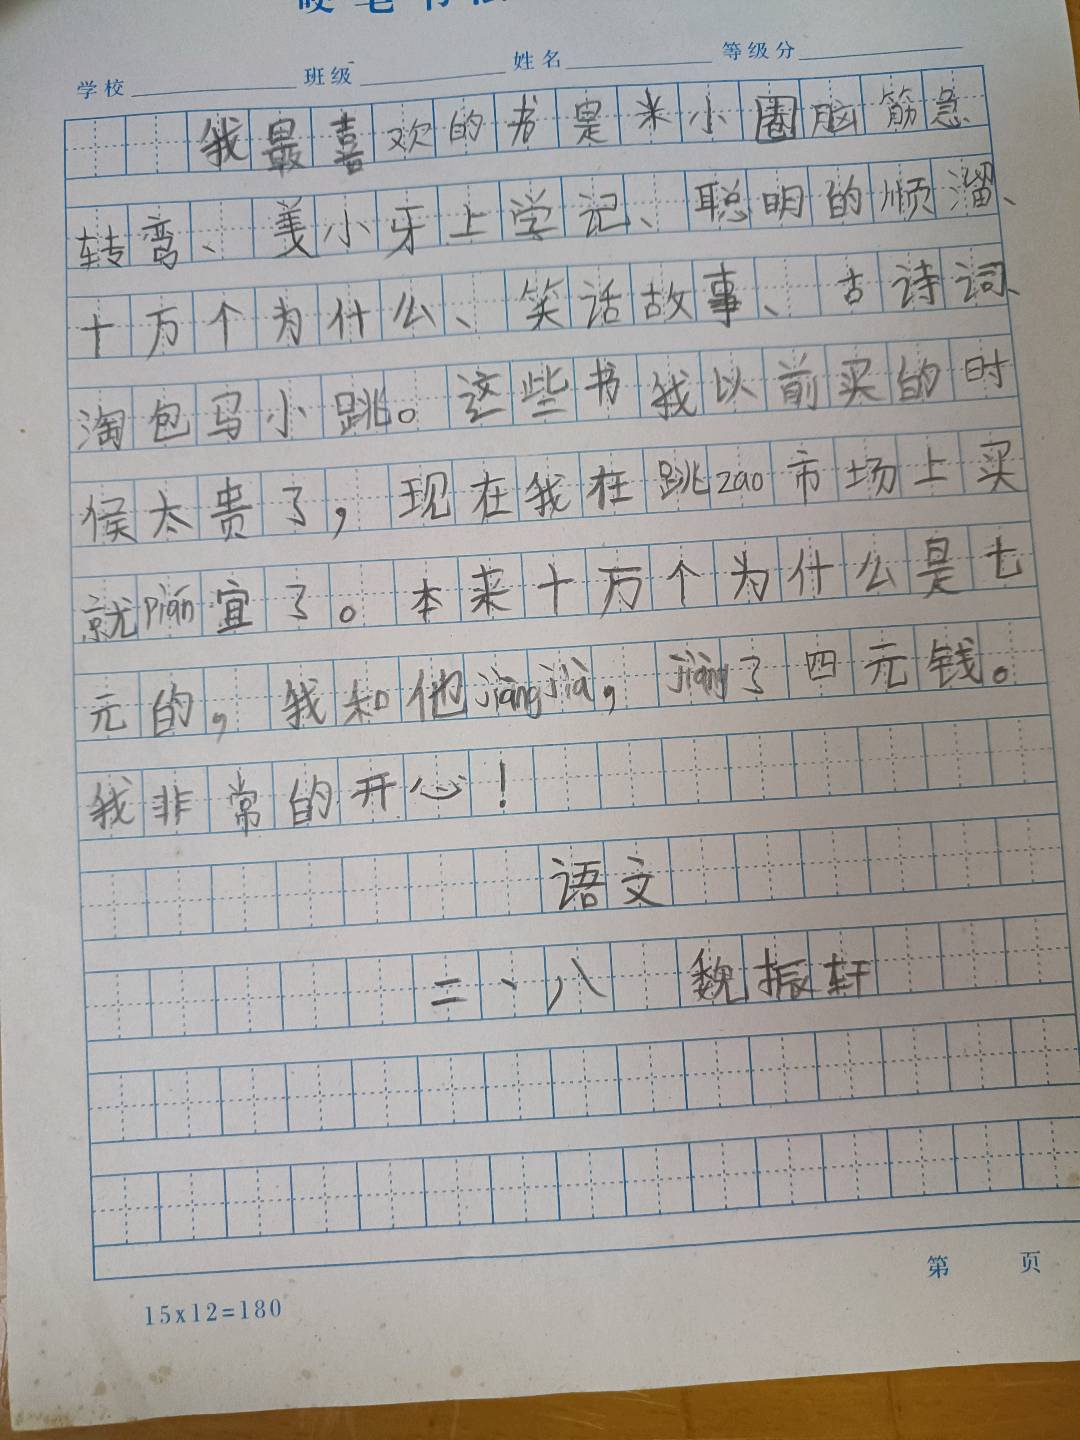 学校 班级 姓名 等级分
我最喜欢的书是米小圈脑筋急
转弯、姜小牙上学记、聪明的顺溜、
十万个为什么、笑话故事、古诗词、
淘包马小跳。这些书我以前买的时
候太贵了，现在我在跳zao市场上买
就pián宜了。本来十万个为什么是七
元的，我和他jiǎng jià，jiǎng了四元钱。
我非常的开心！
语文
二、八 魏振轩
第 页
15x12=180